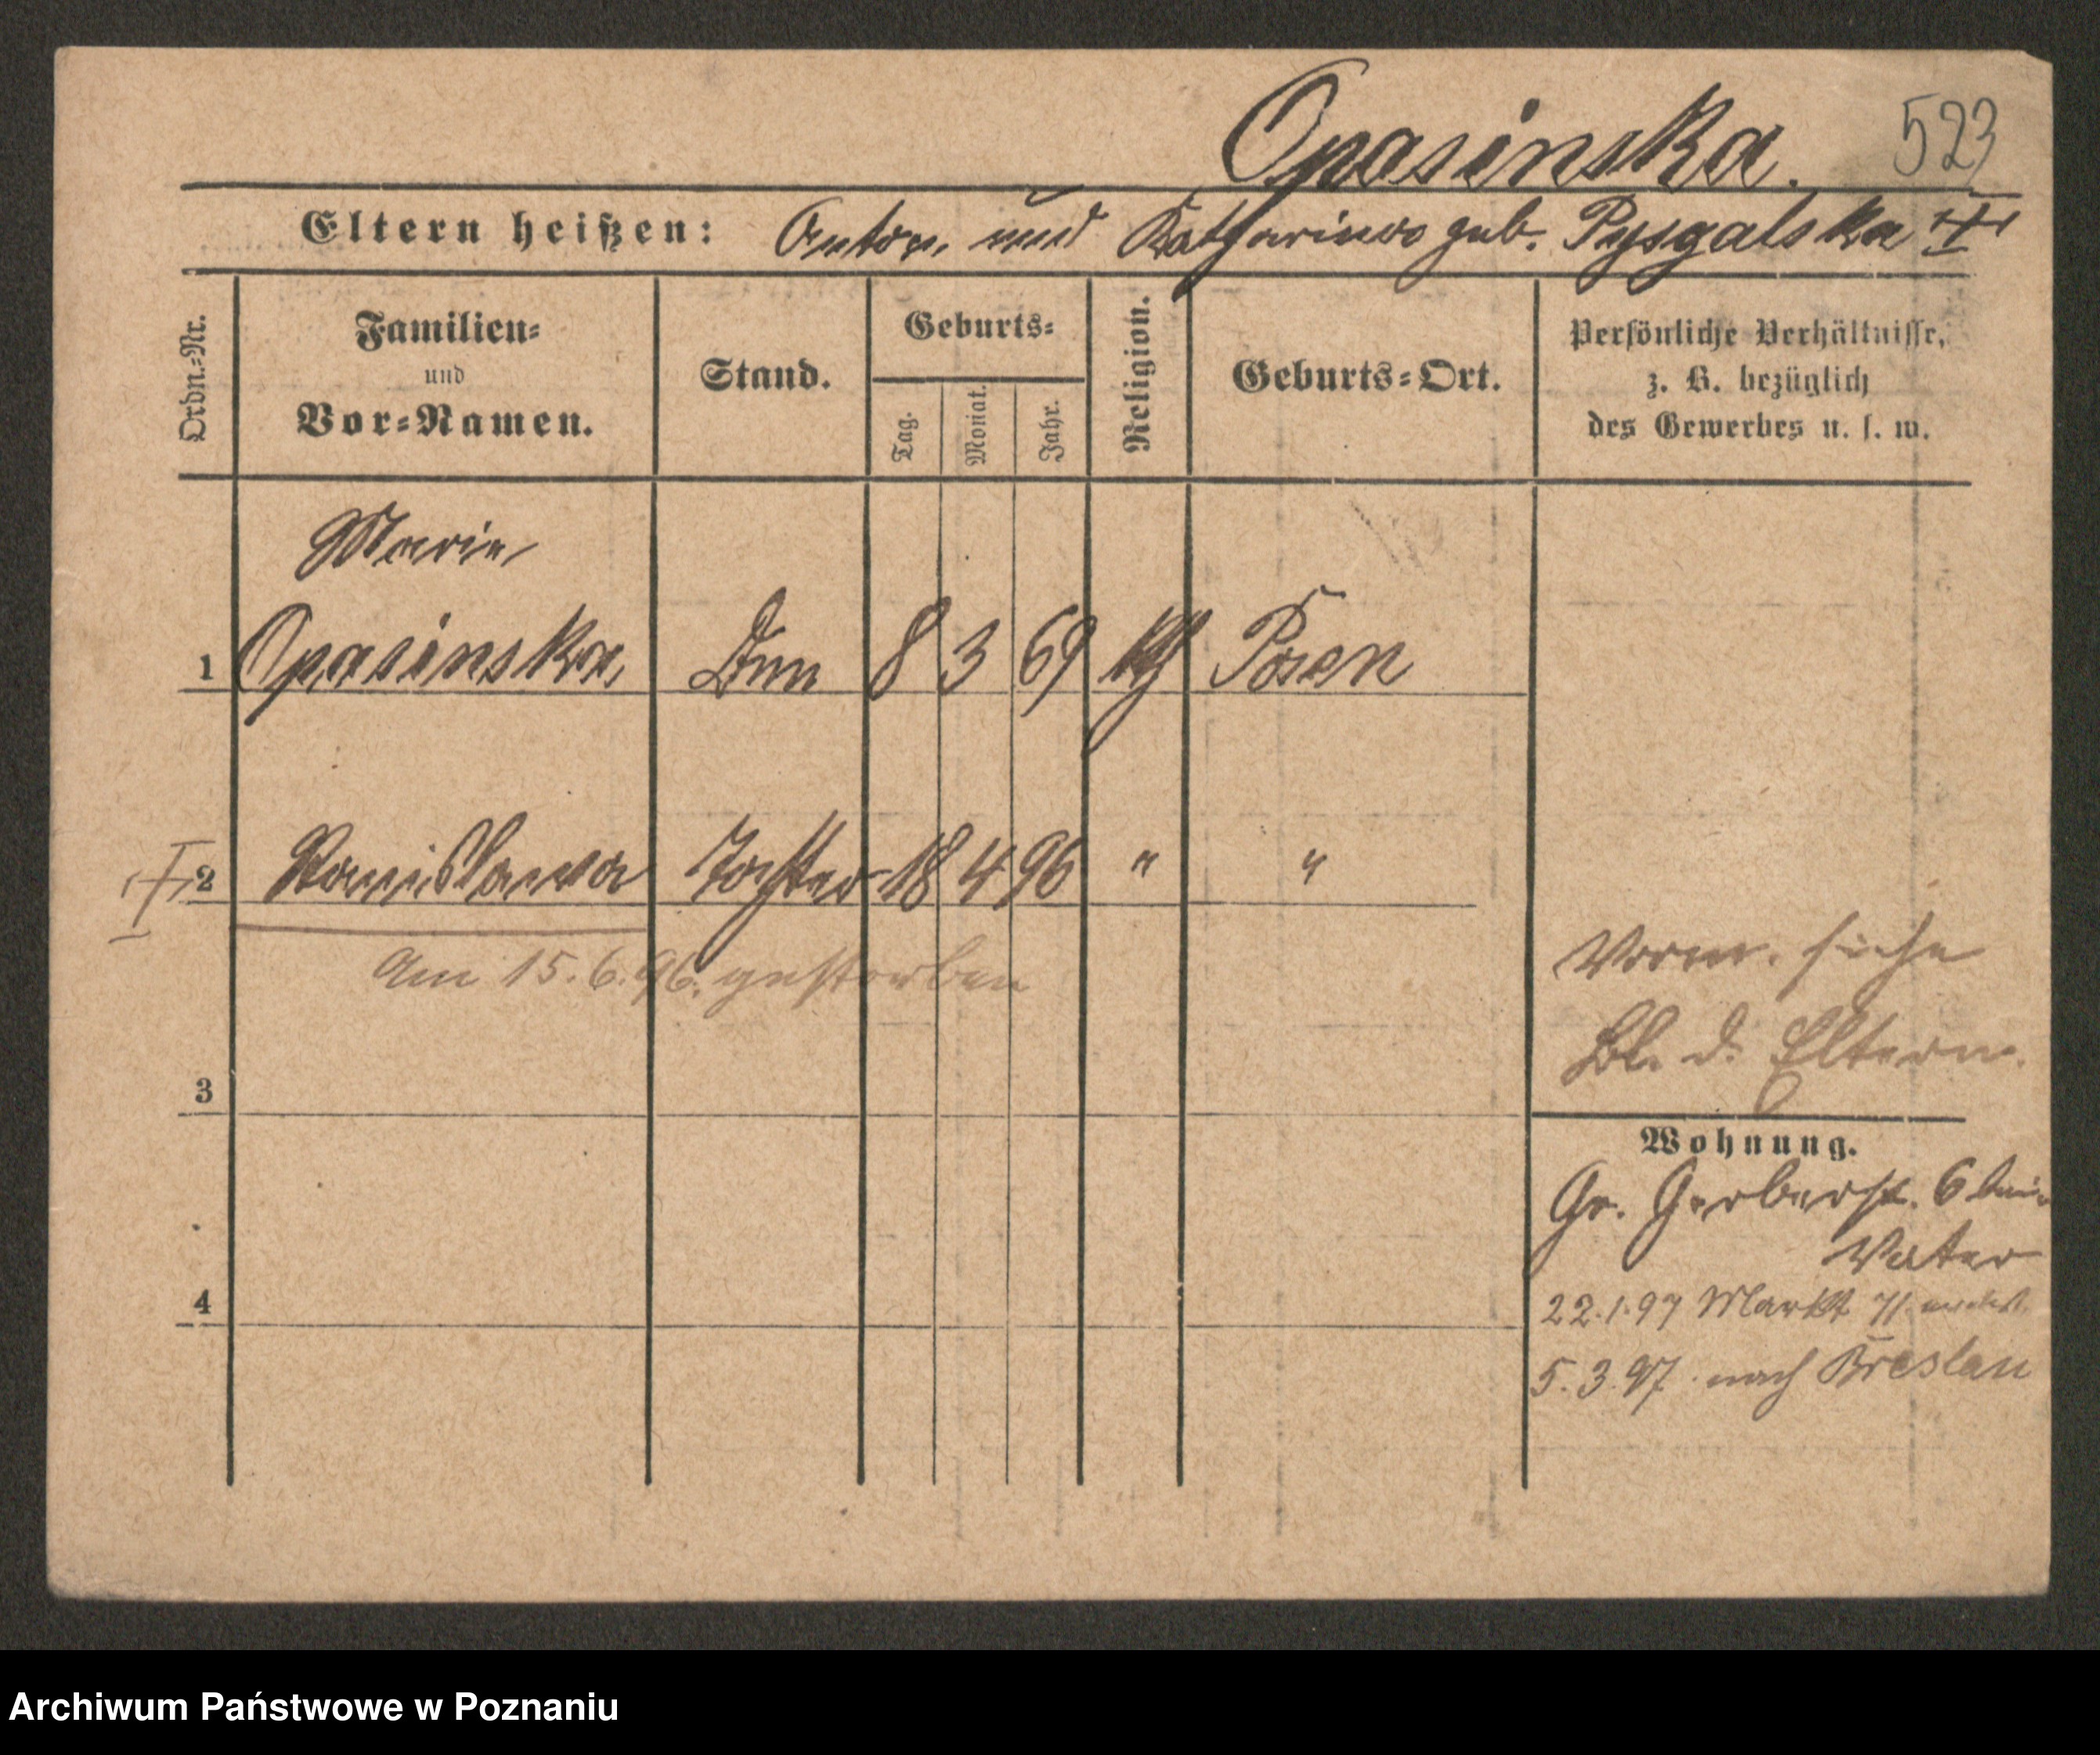 Opasinska. 523
Eltern heißen: Anton und Katharina geb. Pysgalska
Ordn.-Nr.
Familien-
und
Vor-Namen.
Stand.
Geburts-
Tag.
Monat.
Jahr.
Religion.
Geburts-Ort.
Persönliche Verhältnisse,
z. B. bezüglich
des Gewerbes u. s. w.
Marie
1 Opasinska 8 3 69 kth Posen
2 Stanislawa Tochter 18 4 96 " "
Am 15.6.96. gestorben
Vorm. siehe
Bl. d. Eltern.
3
Wohnung.
Gr. Gerberst. 6 beim
Vater
22.1.97 Markt 71
4
5.3.97. nach Breslau
Archiwum Państwowe w Poznaniu